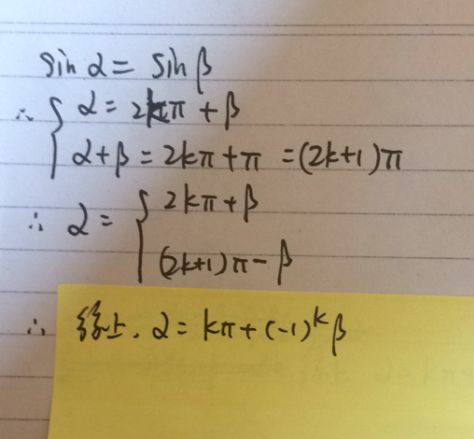 sin α = sin β
∴ { α = 2kπ + β
α + β = 2kπ + π = (2k+1)π
∴ α = { 2kπ + β
(2k+1)π - β
∴ 综上. α = kπ + (-1)^k β